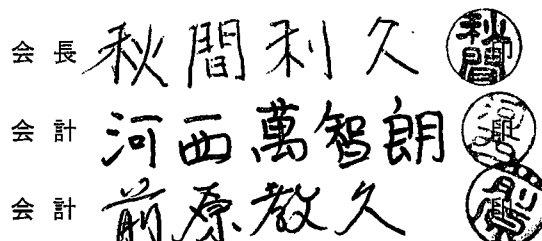 会長 秋間利久 秋間
会計 河西萬智朗
会計 前原教久 前原